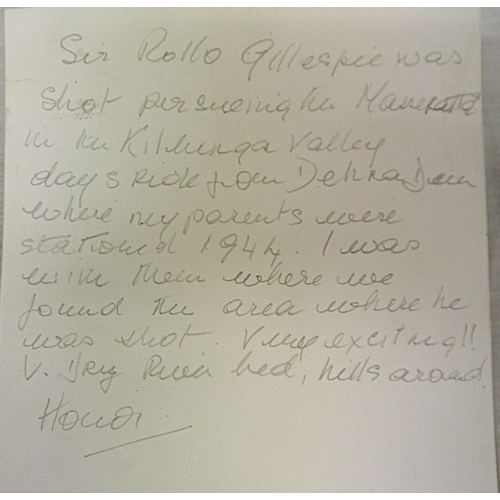 Sir Rollo Gillespie was
shot persueing the
in the Kilunga Valley
days ride from Dehra Dun
where my parents were
stationed 1944. I was
with them where we
found the area where he
was shot. V very exciting!!
V. Dry River bed, hills around
Honor